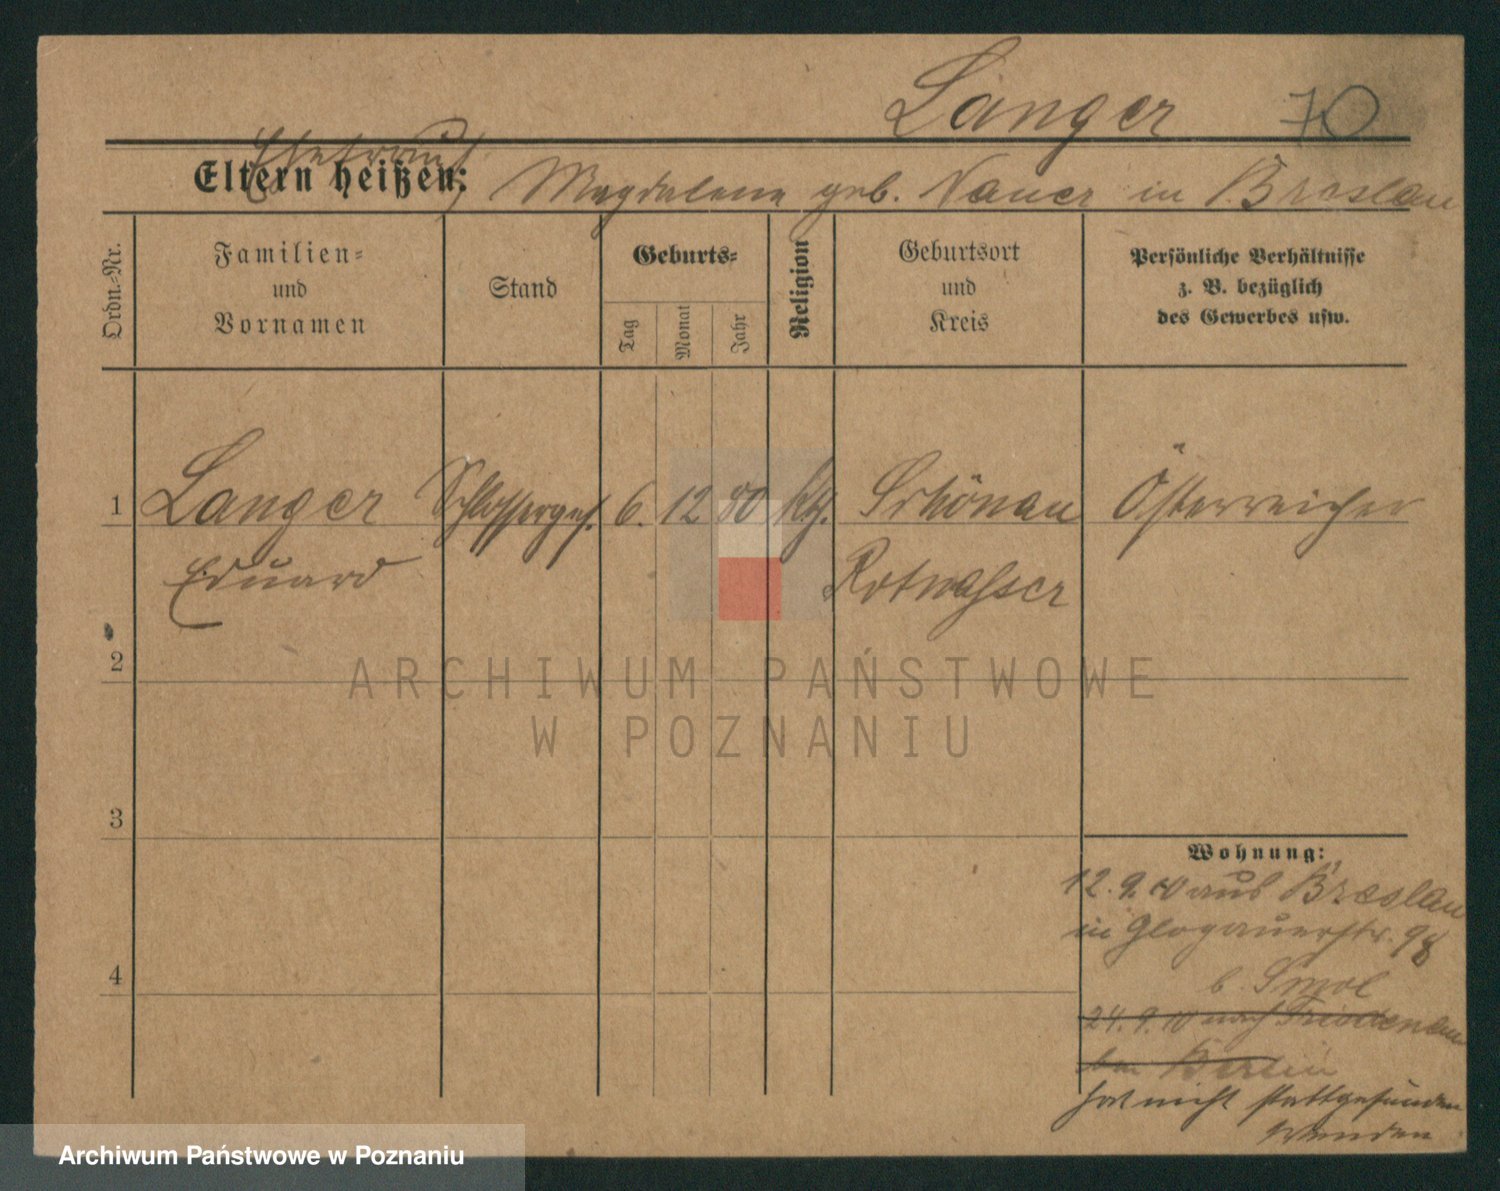 Langer 70
Ehefrau
Eltern heißen: Magdalene geb. Nauer in Breslau
Ordn.-Nr.
Familien-
und
Vornamen
Stand
Geburts-
Tag
Monat
Jahr
Religion
Geburtsort
und
Kreis
Persönliche Verhältnisse
z. B. bezüglich
des Gewerbes usw.
1 Langer Schlosserges. 6. 12 80 kth. Schönau Österreicher
Eduard Rotwasser
2
3
4
Wohnung:
12.9.10 aus Breslau
in Glogauerstr. 98
b. Smol
24.9.10 nach
Berlin
hat nicht stattgefunden
ARCHIWUM PAŃSTWOWE
W POZNANIU
Archiwum Państwowe w Poznaniu